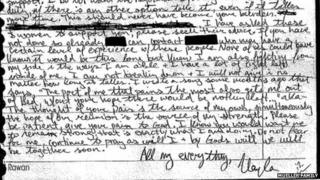 support, I do not want
if there is any other option take it, even if it takes
more time. This should never have become your burden.
asked these
women to support you; please seek their advice. If you have
not done so already, can contact who may have a
certain level of experience with these people. None of us could have
known it would be this long but know I am also fighting from
my side in the ways I am able + I have a lot of fight left
inside of me. I am not breaking down + I will not give in no
matter how long it takes. I wrote a song some months ago that
says, "The part of me that pains the most also gets me out
of bed, w/out your hope there would be nothing left..." aka-
The thought of your pain is the source of my own, simultaneously
the hope of our reunion is the source of my strength. Please
be patient, give your pain to God. I know you would want me
to remain strong. That is exactly what I am doing. Do not fear
for me, continue to pray as will I + by God's will we will
be together soon.
All my everything,
Kayla
Rawan
MUELLER FAMILY